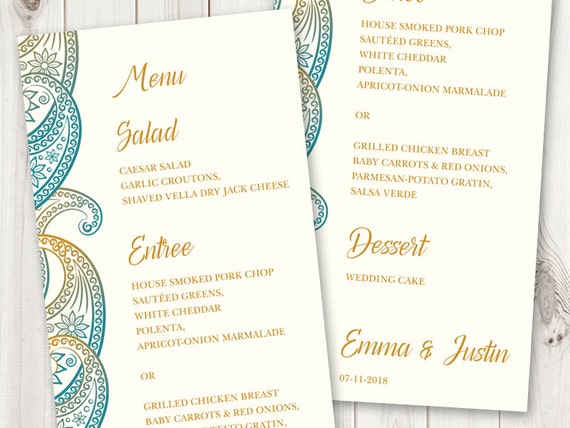 Menu
Salad
CAESAR SALAD
GARLIC CROUTONS,
SHAVED VELLA DRY JACK CHEESE
Entree
HOUSE SMOKED PORK CHOP
SAUTÉED GREENS,
WHITE CHEDDAR
POLENTA,
APRICOT-ONION MARMALADE
OR
GRILLED CHICKEN BREAST
BABY CARROTS & RED ONIONS,
HOUSE SMOKED PORK CHOP
SAUTÉED GREENS,
WHITE CHEDDAR
POLENTA,
APRICOT-ONION MARMALADE
OR
GRILLED CHICKEN BREAST
BABY CARROTS & RED ONIONS,
PARMESAN-POTATO GRATIN,
SALSA VERDE
Dessert
WEDDING CAKE
Emma & Justin
07-11-2018